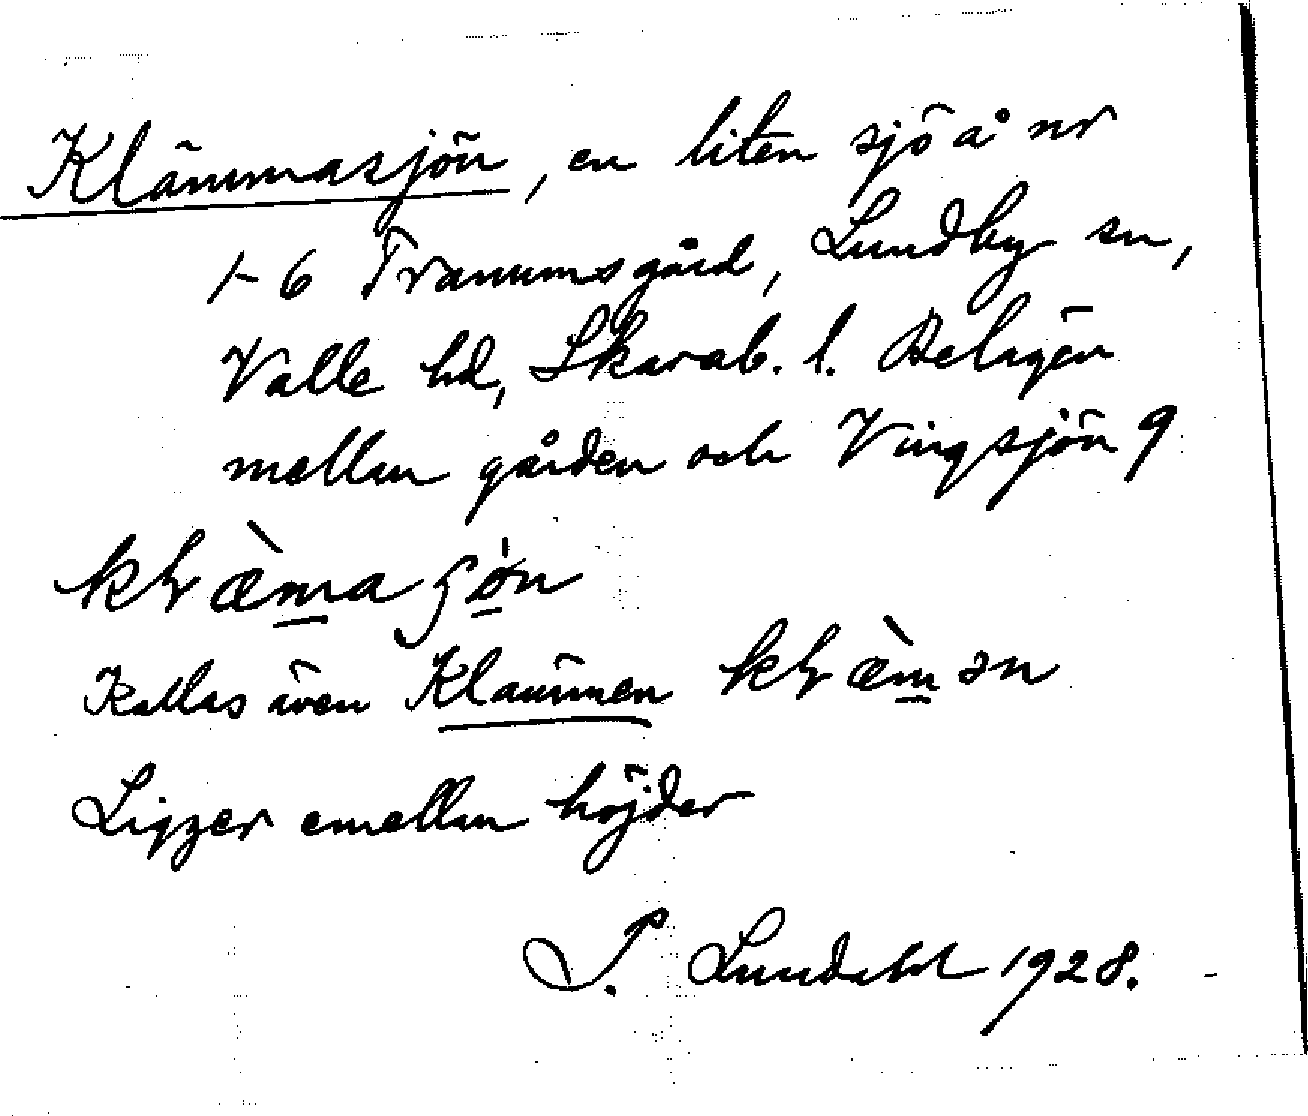 Klämmasjön, en liten sjö å nr
1-6 Tranumsgård, Lundby sn,
Valle hd, Skarab. l. Belägen
mellan gården och Vingsjön 9
Kallas även Klämmen
Ligger emellan höjder
S. Lundahl 1928.